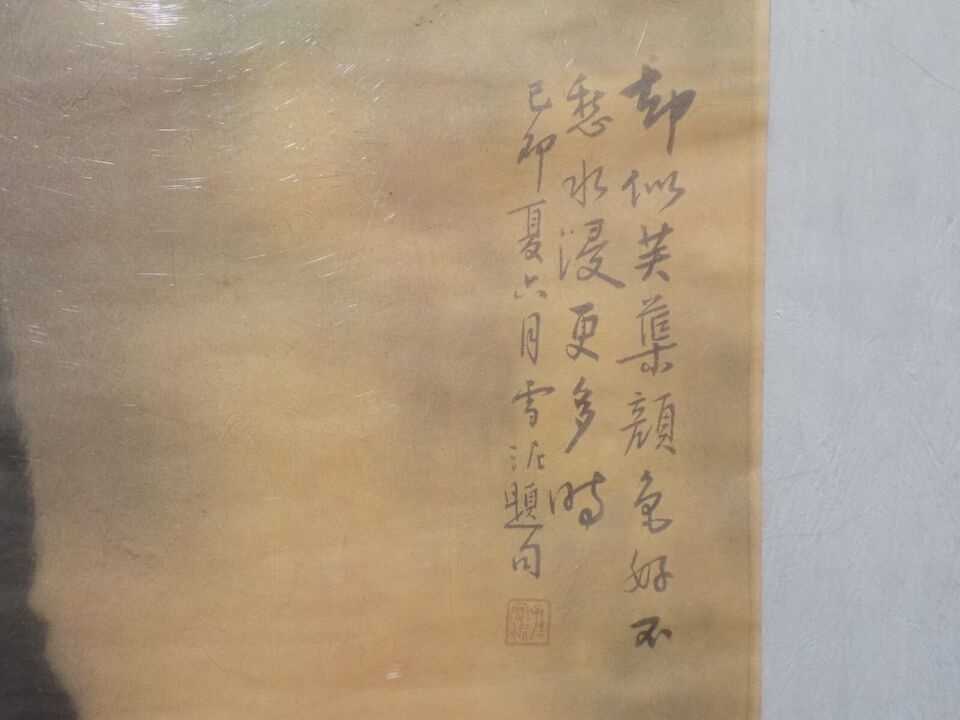 却似芙蕖顔色好不
愁水浸更多時
己卯夏六月雪泥題句